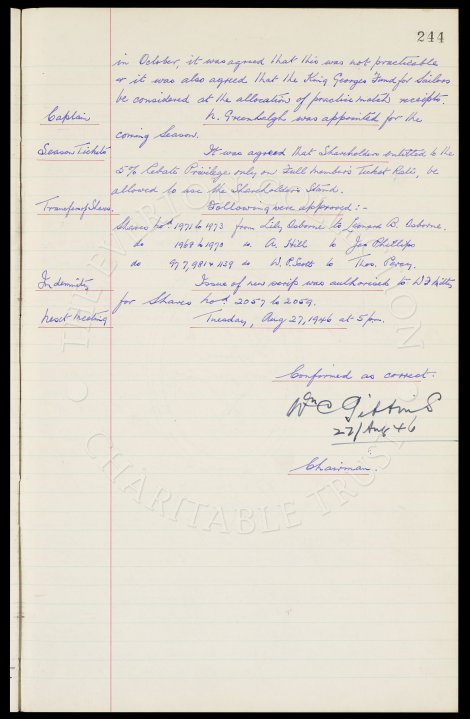 244
in October, it was agreed that this was not practicable
& it was also agreed that the King Georges Fund for Sailors
be considered at the allocation of practice match receipts.
Captain N. Greenhalgh was appointed for the
coming Season.
Season Tickets It was agreed that Shareholders entitled to the
5% Rebate Privilege only, on Full Members Ticket Rate, be
allowed to use the Shareholders Stand.
Transfer of Shares. Following were approved :-
Shares nod. 1971 to 1973 from Lily Osborne to Leonard B. Osborne.
do 1968 to 1970 to A. Hill to Jas Phillips
do 977, 981 & 1139 do W. P. Scotts to Thos. Percy.
Indemnity Issue of new scrip was authorised to
for Shares nod. 2057 to 2059.
Next Meeting Tuesday, Aug 27, 1946 at 5 pm.
Confirmed as correct.
Wm C Gibbins
27/Aug 46
Chairman.
© THE EVERTON COLLECTION
CHARITABLE TRUST